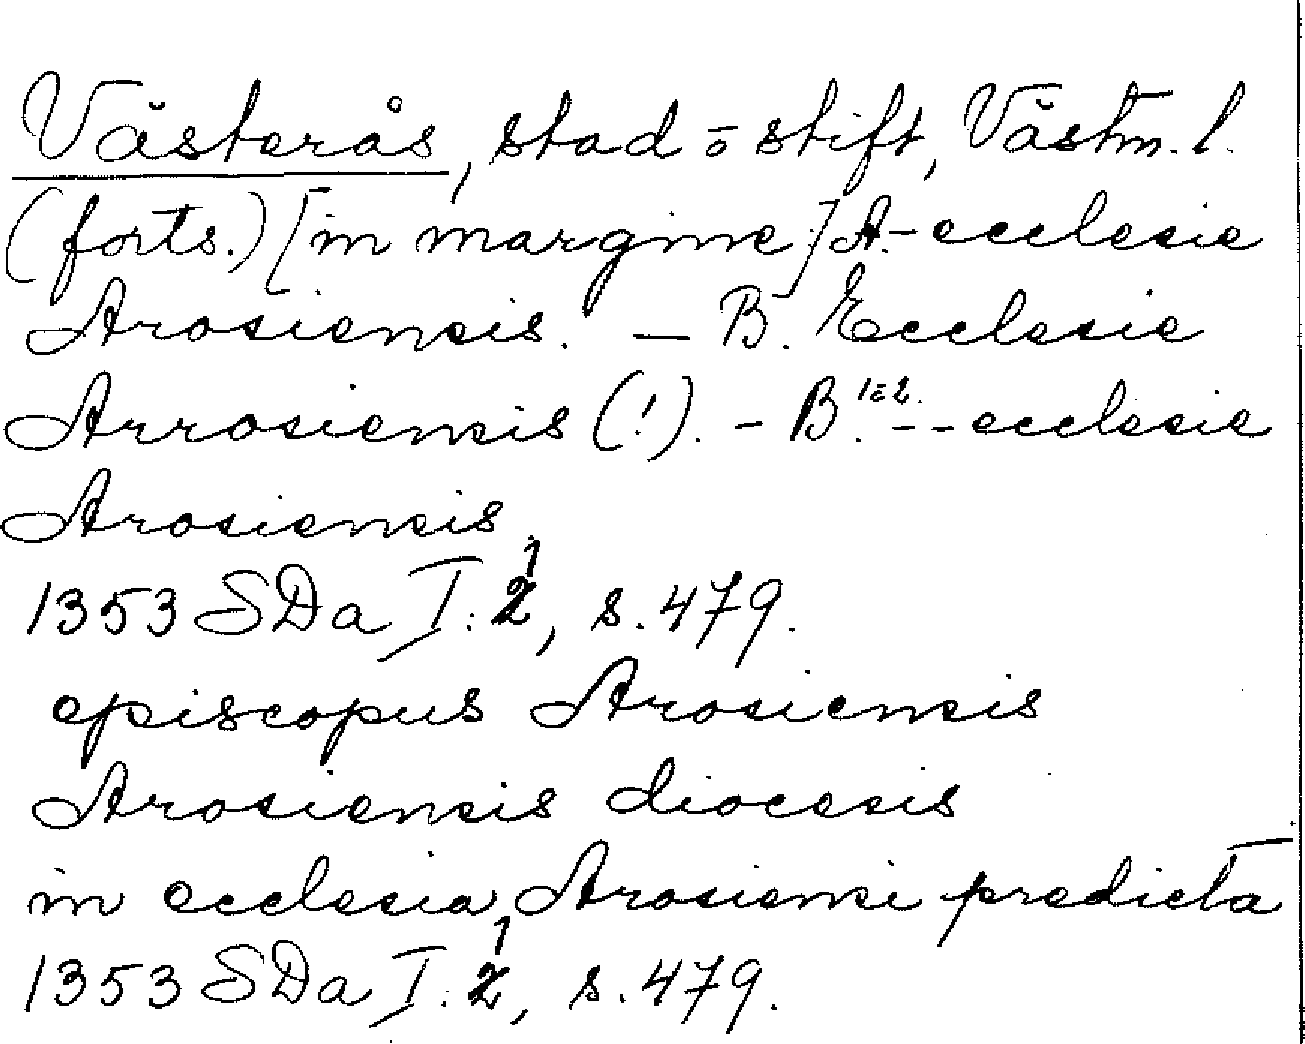 Västerås, stad o stift, Västm. l.
(forts.) [in margine] A.- ecclesie
Arosiensis. — B. Ecclesie
Arrosiensis (!). - B.1:2. -- ecclesie
Arosiensis
1353 SDa I:2, s. 479.
episcopus Arosiensis
Arosiensis diocesis
in ecclesia Arosiensi predicta
1353 SDa I:2, s. 479.